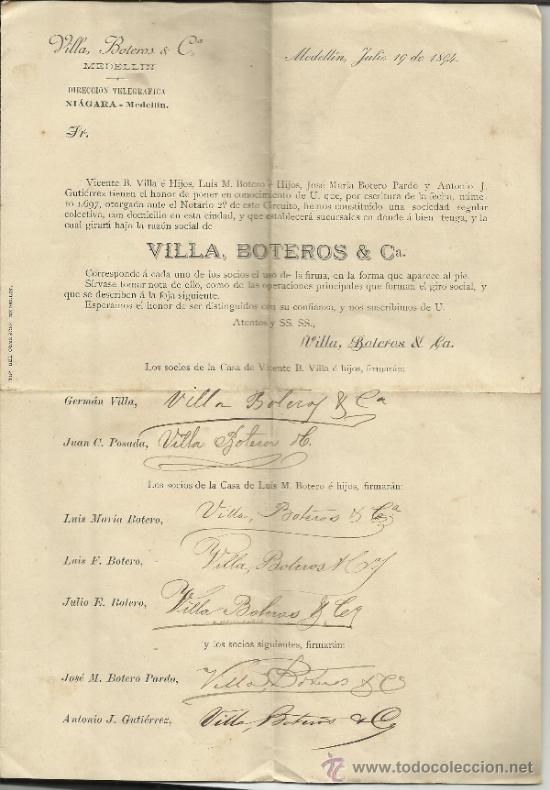 Villa, Boteros & Ca
MEDELLIN
DIRECCION TELEGRAFICA
NIÁGARA - Medellín.
Medellín, Julio 19 de 1894.
Sr.
Vicente B. Villa é Hijos, Luis M. Botero é Hijos, José María Botero Pardo y Antonio J.
Gutiérrez tienen el honor de poner en conocimiento de U. que, por escritura de la fecha, núme
ro 1,697, otorgada ante el Notario 2º de este Circuito, hemos constituído una sociedad regular
colectiva, con domicilio en esta ciudad, y que establecerá sucursales en donde á bien tenga, y la
cual girará bajo la razón social de
VILLA, BOTEROS & Ca.
Corresponde á cada uno de los socios el uso de la firma, en la forma que aparece al pie.
Sírvase tomar nota de ello, como de las operaciones principales que forman el giro social, y
que se describen á la foja siguiente.
Esperamos el honor de ser distinguidos con su confianza, y nos suscribimos de U.
Atentos y SS. SS.,
Villa, Boteros & Ca.
Los socios de la Casa de Vicente B. Villa é hijos, firmarán:
Germán Villa, Villa Boteros & Ca
Juan C. Posada, Villa Boteros
Los socios de la Casa de Luis M. Botero é hijos, firmarán:
Luis María Botero, Villa, Boteros & Ca
Luis F. Botero, Villa, Boteros
Julio E. Botero, Villa Boteros & Ca
y los socios siguientes, firmarán:
José M. Botero Pardo, Villa, Boteros & Ca
Antonio J. Gutiérrez, Villa, Boteros & Ca
TIP. DEL COMERCIO MEDELLIN.
todocoleccion
www.todocoleccion.net